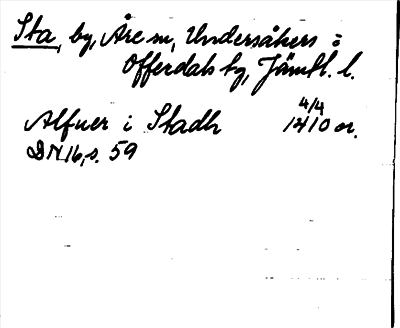 Sta, by, Åre sn, Undersåkers o
Offerdals tg, Jämtl. l.
4/4
Alfuer i Stadh 1410 or.
DN 16, s. 59